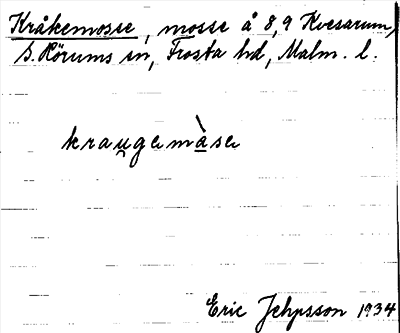 Kråkemosse, mosse å 8,9 Kvesarum,
S. Hörums sn, Frosta hd, Malm. l.
kraugemàse
Eric Jehpsson 1934